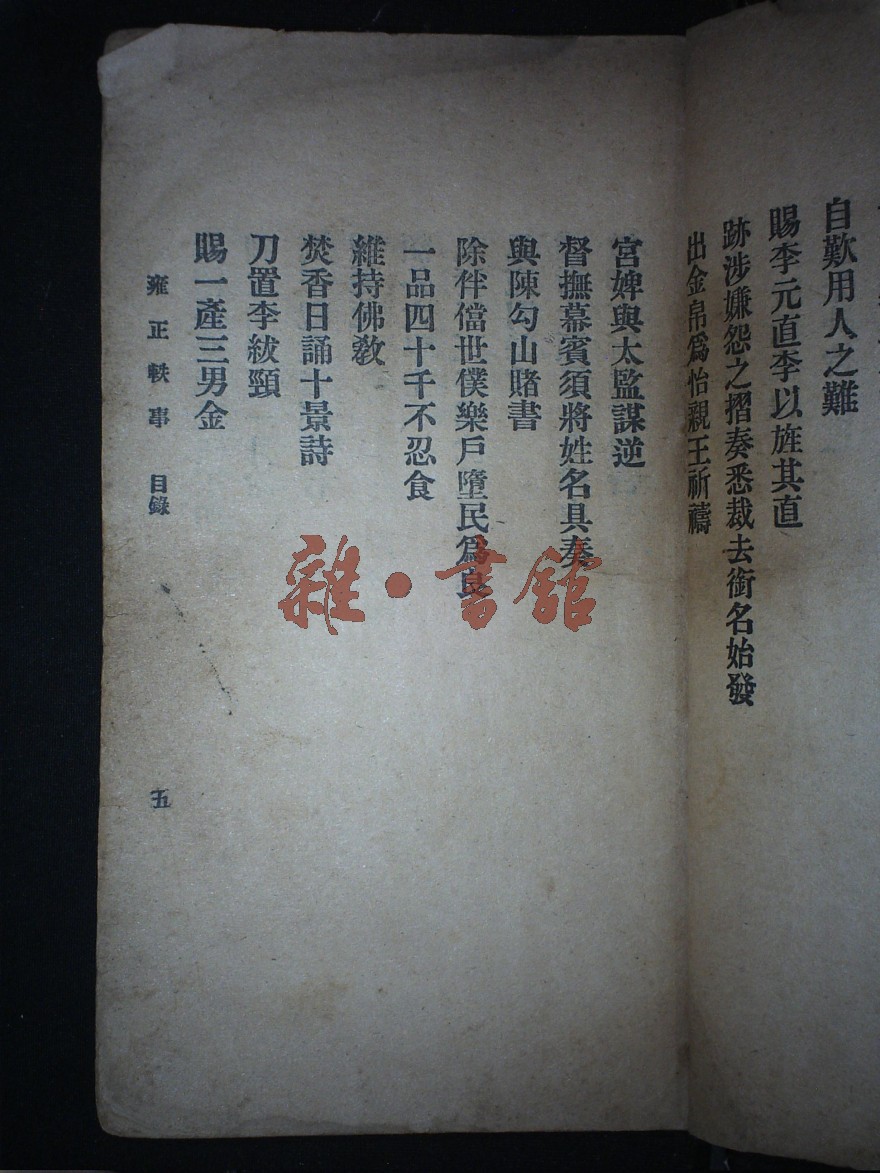 自歎用人之難
賜李元直李以旌其直
跡涉嫌怨之摺奏悉裁去銜名始發
出金帛爲怡親王祈禱
宮婢與太監謀逆
督撫幕賓須將姓名具奏
與陳勾山賭書
除伴儅世僕樂戶墮民爲良
一品四十千不忍食
維持佛敎
焚香日誦十景詩
刀置李紱頸
賜一產三男金
雍正軼事 目錄
五
雜·書館